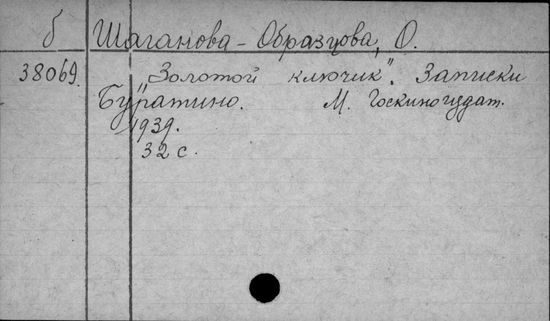 б Шаганова-Образцова, О.
38069. "Золотой ключик". Записки
Буратино. М. Госкиноиздат.
1939.
32 с.